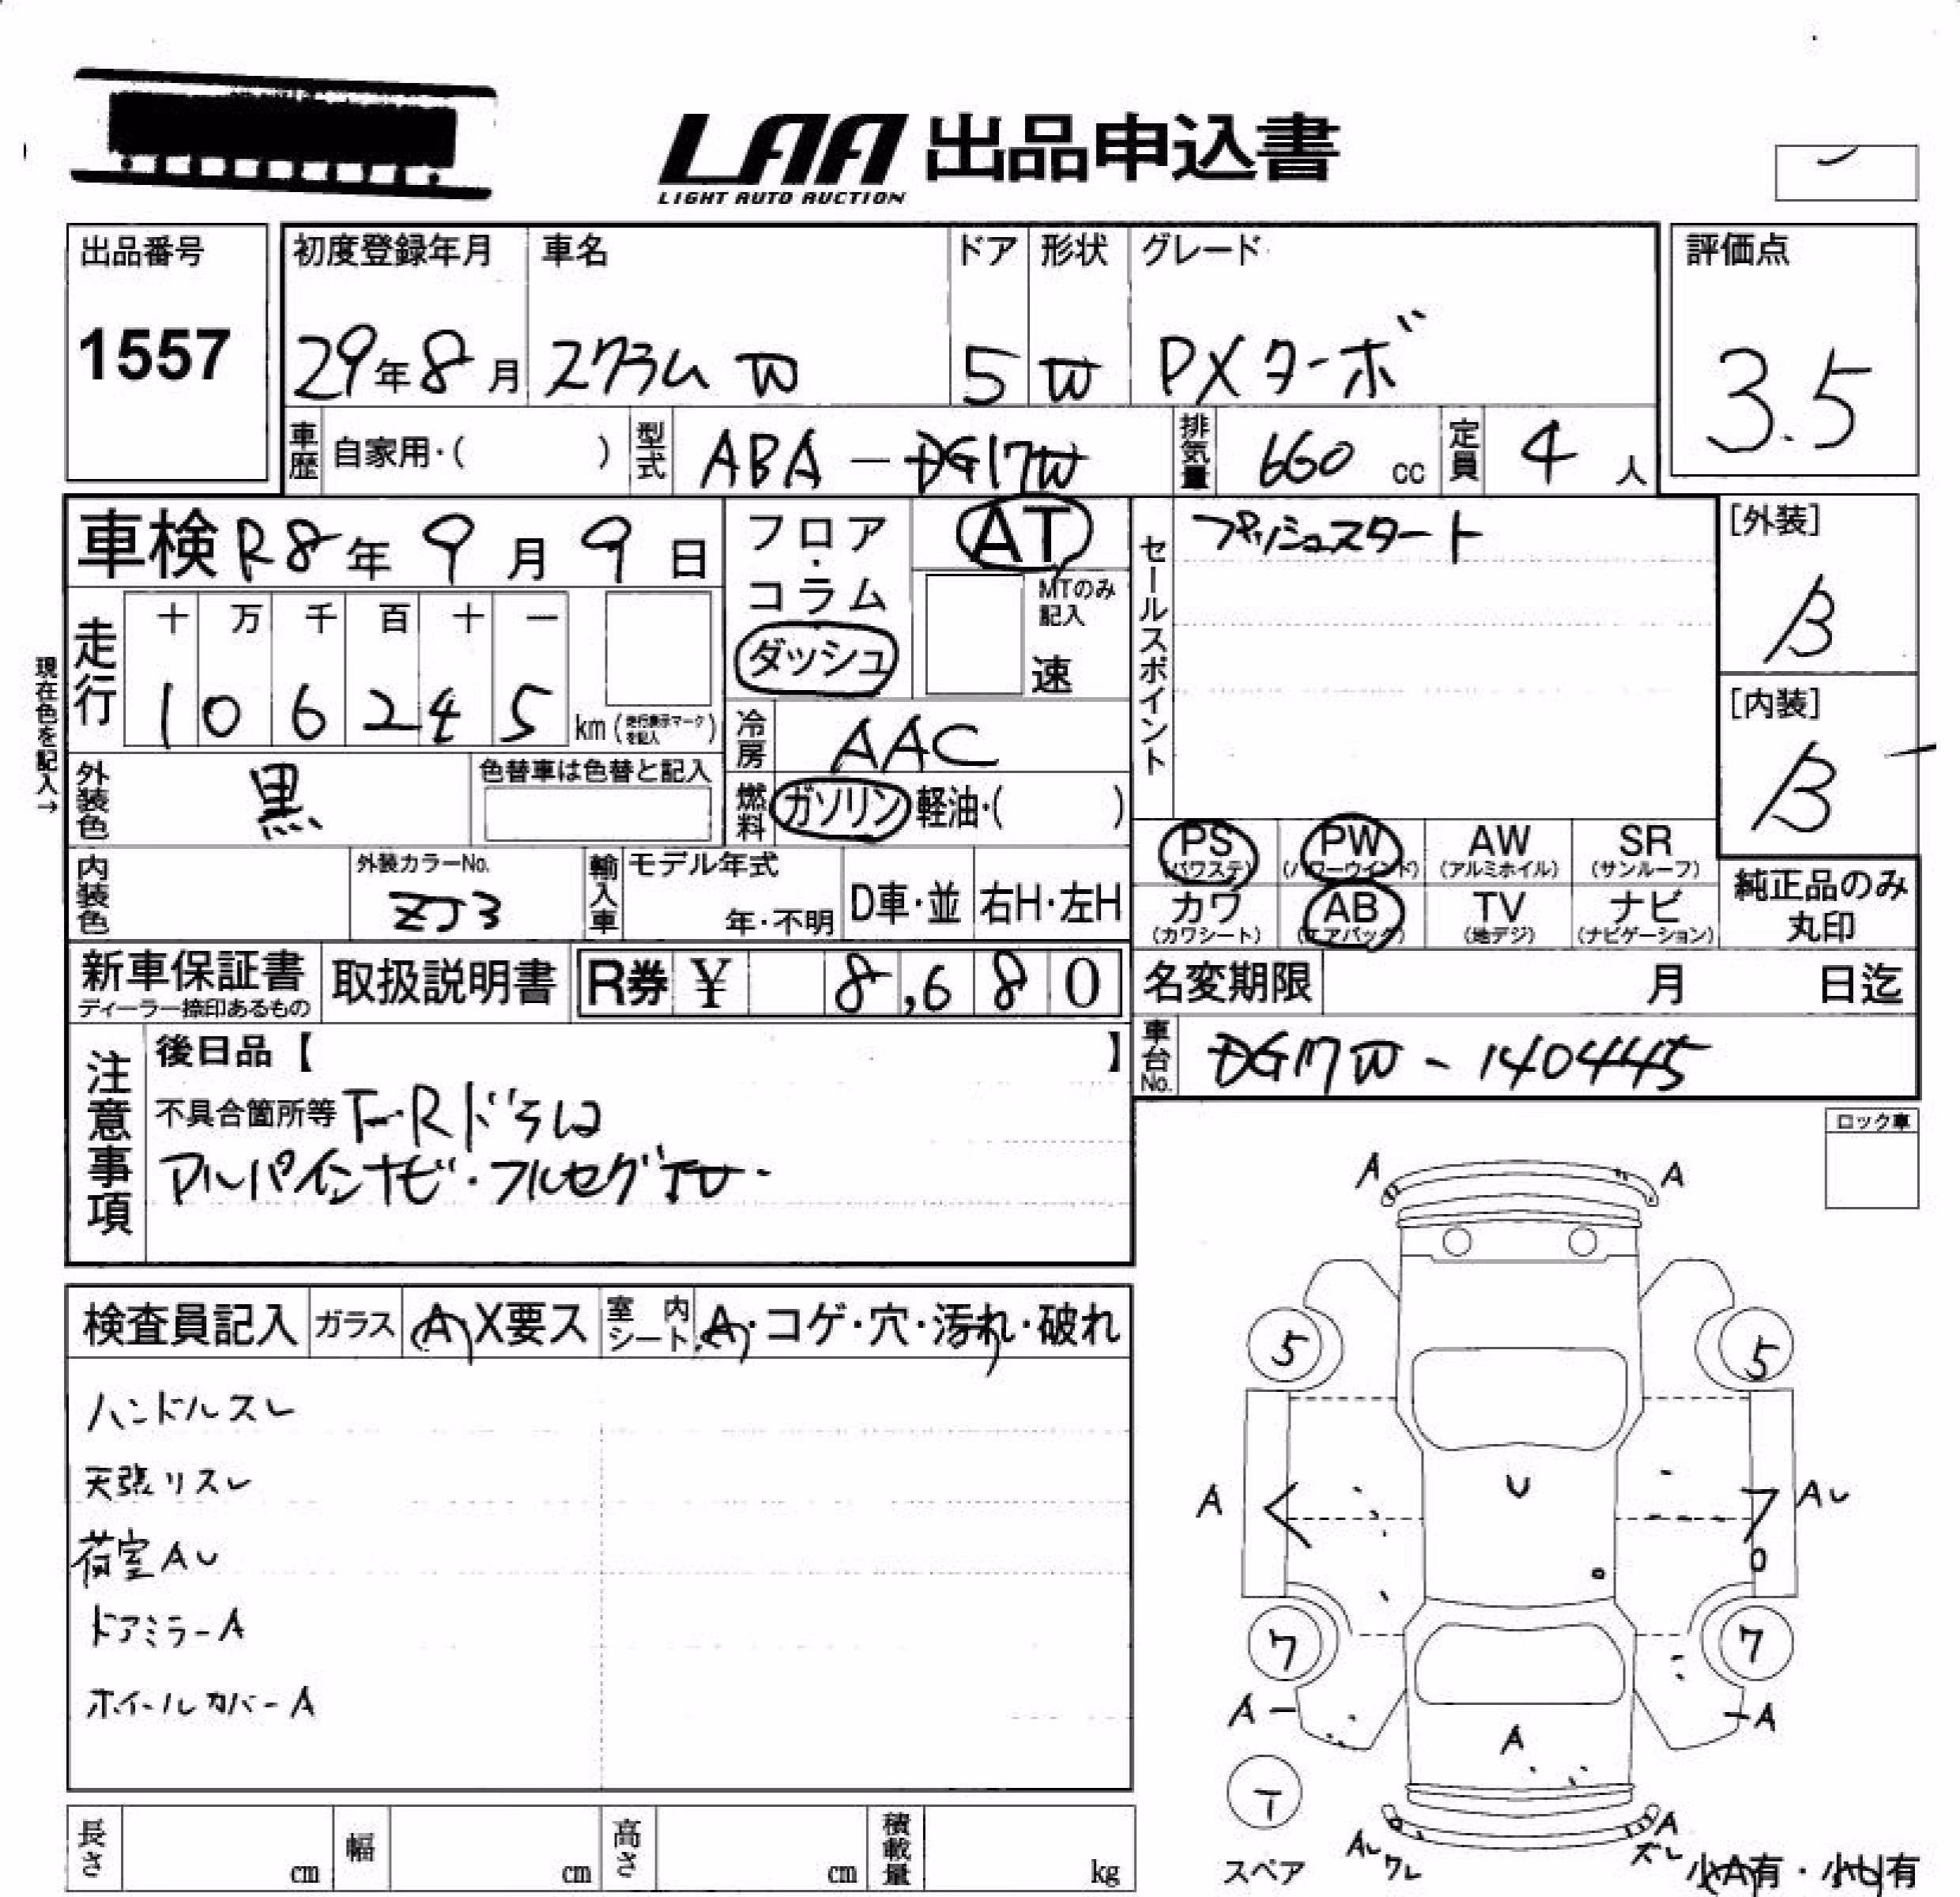 LAA 出品申込書
LIGHT AUTO AUCTION
出品番号
1557
初度登録年月 車名 ドア 形状 グレード
29年8月 スクラムW 5 W PXターボ
評価点
3.5
車歴 自家用・( ) 型式 ABA-DG17W 排気量 660 cc 定員 4 人
車検 R8年 9月 9日
フロア・コラム
ダッシュ
AT
MTのみ記入
速
セールスポイント
プッシュスタート
[外装]
B
[内装]
B
現在色を記入→
走行
十 万 千 百 十 一
1 0 6 2 4 5 km (走行表示マークを記入)
冷房 AAC
外装色 黒
色替車は色替と記入
燃料 ガソリン 軽油・( )
PS (パワステ) PW (パワーウインド) AW (アルミホイル) SR (サンルーフ)
カワ (カワシート) AB (エアバック) TV (地デジ) ナビ (ナビゲーション)
純正品のみ丸印
内装色
外装カラーNo.
ZJ3
輸入車 モデル年式
年・不明 D車・並 右H・左H
新車保証書
ディーラー捺印あるもの
取扱説明書 R券 ¥ 8,680
名変期限 月 日迄
車台No. DG17W-140445
注意事項
後日品【 】
不具合箇所等 F・Rドラレコ
アルパインナビ・フルセグTV・
ロック車
検査員記入 ガラス A X要ス 室内シート A・コゲ・穴・汚れ・破れ
ハンドルスレ
天張リスレ
荷室AU
ドアミラーA
ホイールカバーA
A A
5 5
A U AU
7 7
A A
A
T
スペア
AU ワレ
A
小(A)有・小(U)有
長さ cm 幅 cm 高さ cm 積載量 kg